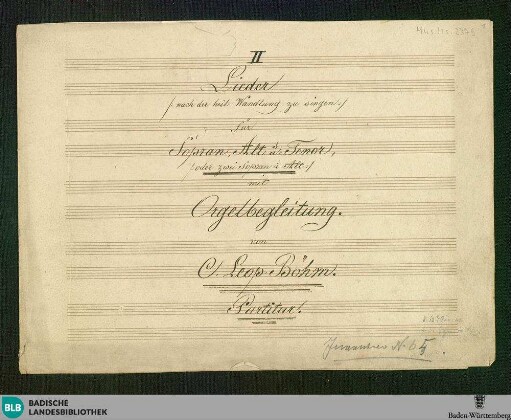 Mus. Hs. 
II
Lieder
/: nach der heil. Wandlung zu singen :/
für
Sopran, Alt u. Tenor,
(oder zwei Sopran u. Alt.)
mit
Orgelbegleitung.
von
C. Leop. Böhm.
Partitur.
Inventar N. 
BLB
BADISCHE
LANDESBIBLIOTHEK
Baden-Württemberg